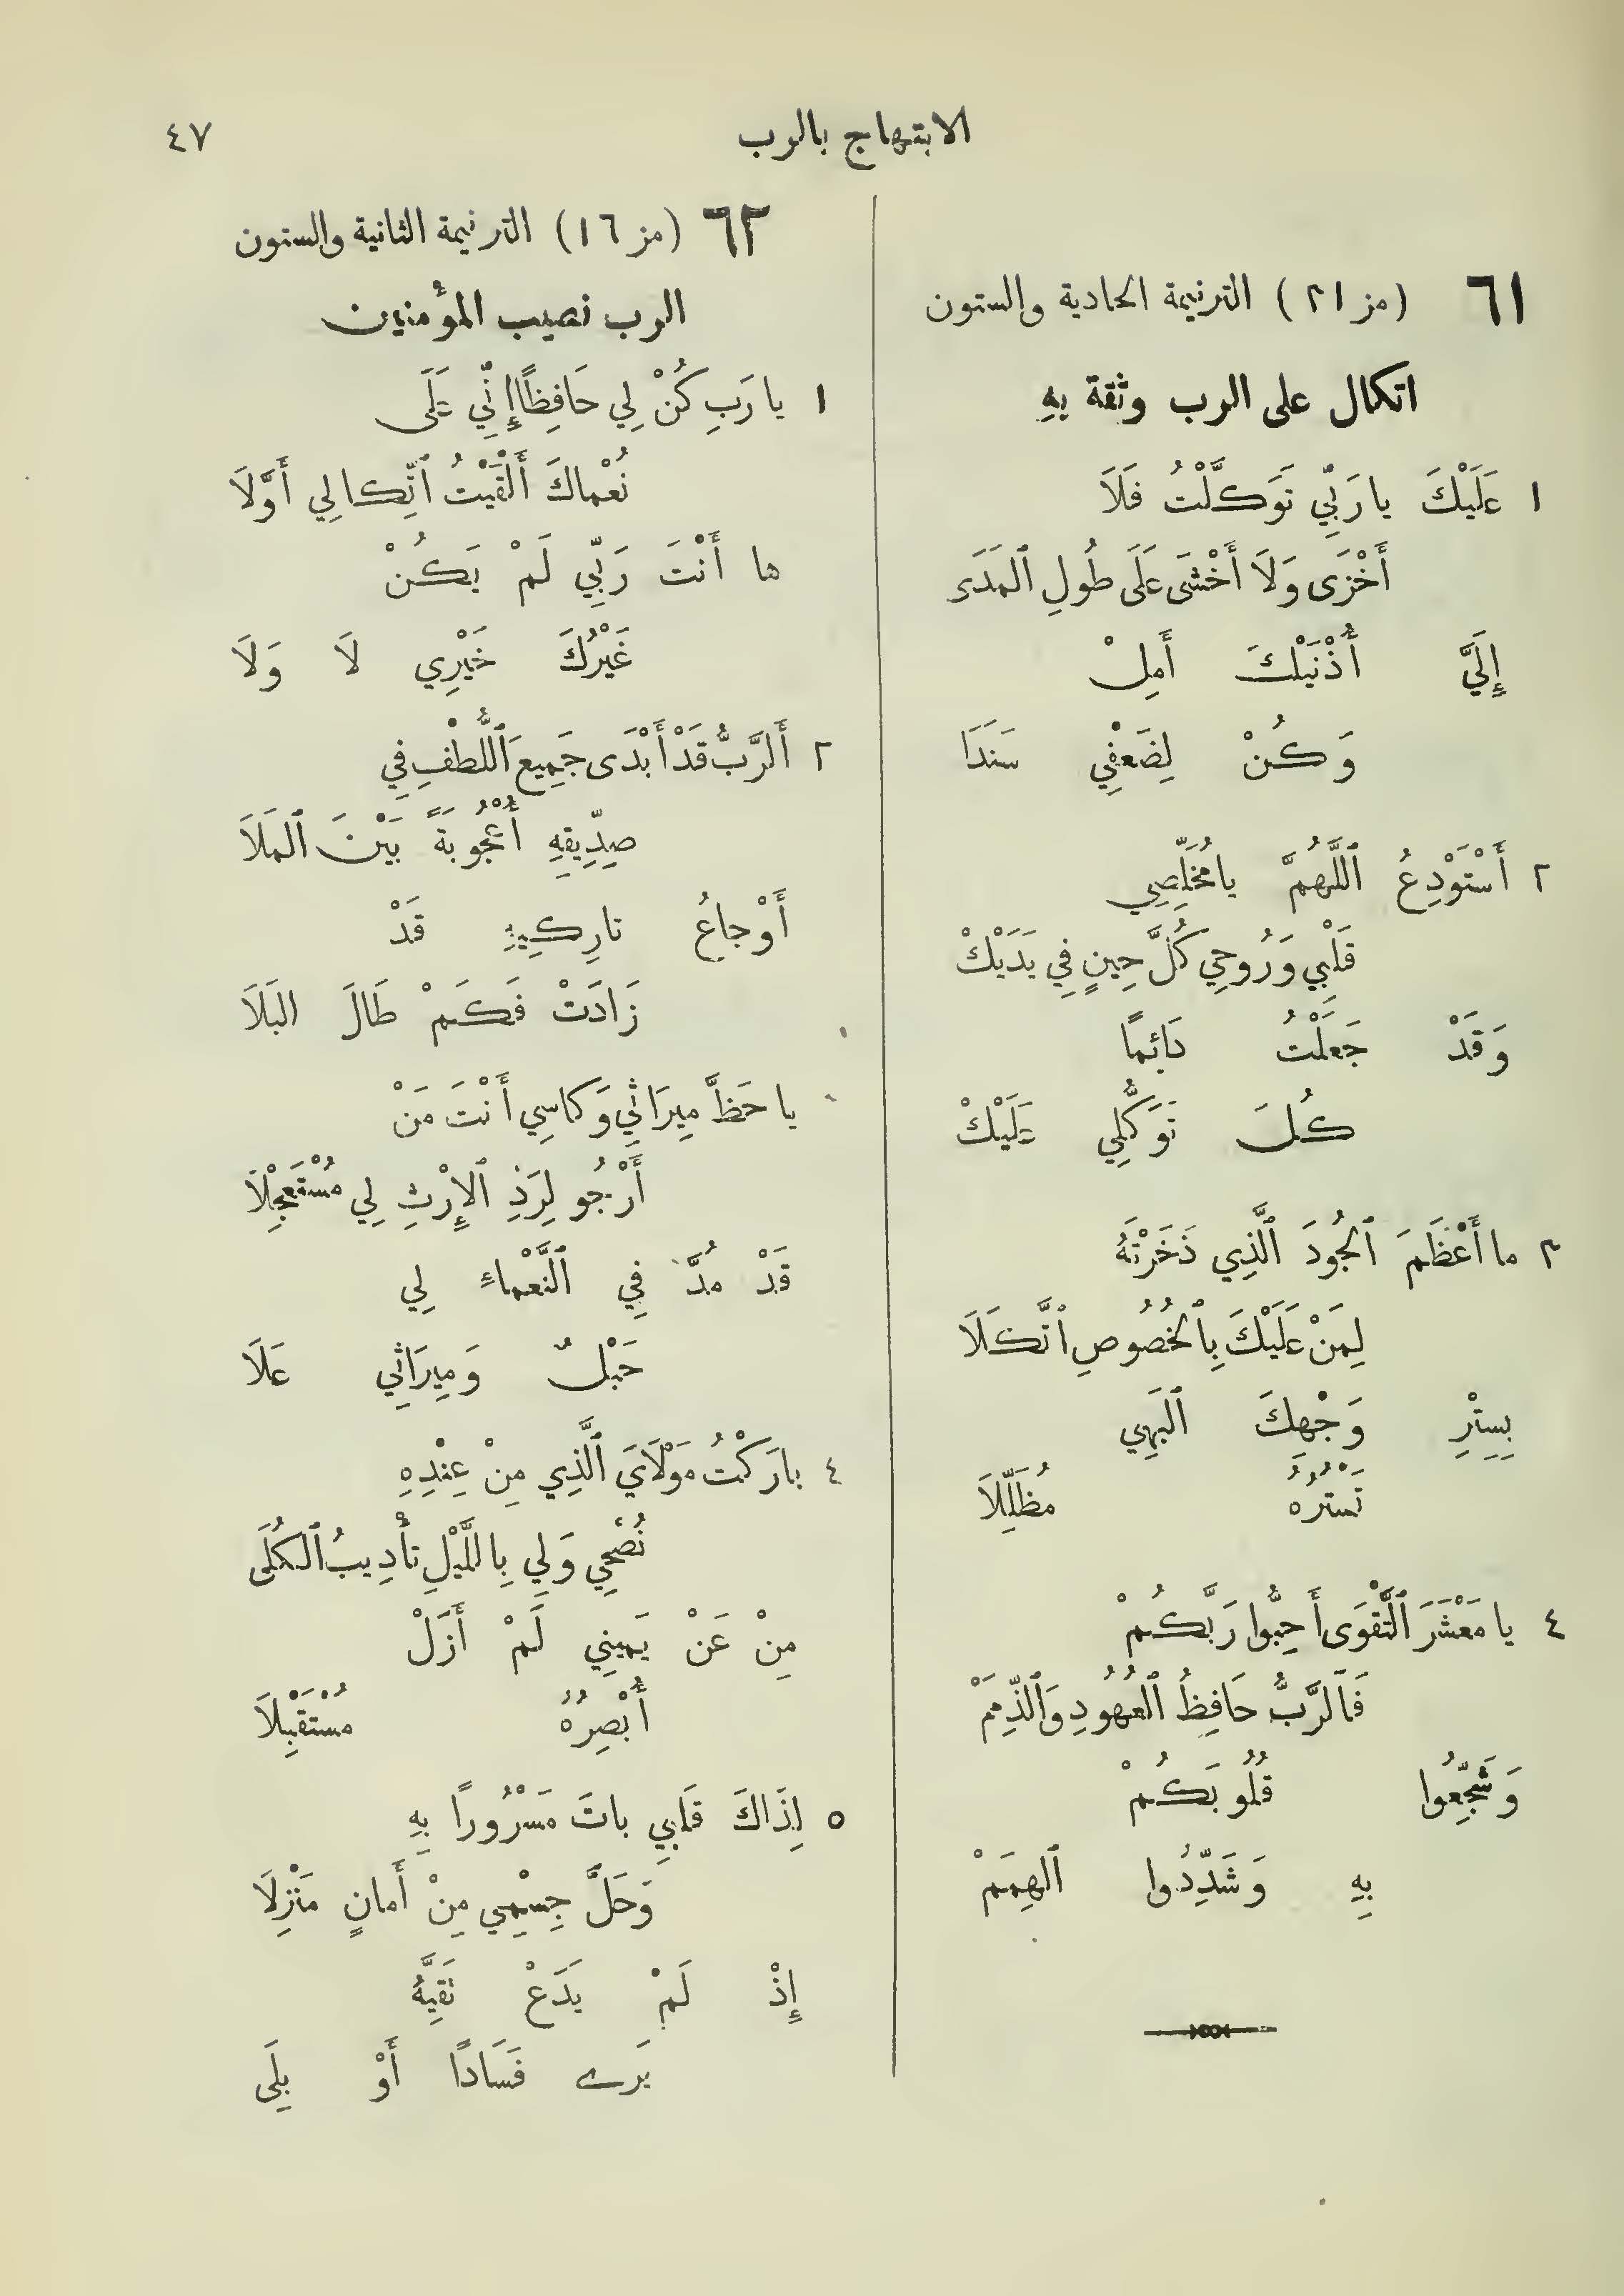 الابتهاج بالرب
٤٧
٦١ (مز ٣١) الترنيمة الحادية والستون
اتكال على الرب وثقة بهِ
١ عَلَيْكَ يا رَبِّي تَوَكَّلْتُ فَلَا
أَخْزَى وَلَا أَخْشَى عَلَى طُولِ ٱلمَدَى
إِلَيَّ أُذْنَيْكَ أَمِلْ
وَكُنْ لِضَعْفِي سَنَدَا
٢ أَسْتَوْدِعُ ٱللَّهُمَّ يا مُخَلِّصِي
قَلْبِي وَرُوحِي كُلَّ حِينٍ فِي يَدَيْكْ
وَقَدْ جَعَلْتُ دَائِمًا
كُلَ تَوَكُّلِي عَلَيْكْ
٣ ما أَعْظَمَ ٱلجُودَ ٱلَّذِي ذَخَرْتَهُ
لِمَنْ عَلَيْكَ بِٱلخُصُوصِ ٱتَّكَلَا
بِسِتْرِ وَجْهِكَ ٱلبَهِي
تَسْتُرُهُ مُظَلِّلَا
٤ يا مَعْشَرَ ٱلتَّقْوَى أَحِبُّوا رَبَّكُمْ
فَٱلرَّبُّ حَافِظُ ٱلعُهُودِ وَٱلذِّمَمْ
وَشَجِّعُوا قُلُوبَكُمْ
بِهِ وَشَدِّدُوا ٱلهِمَمْ
٦٢ (مز ١٦) الترنيمة الثانية والستون
الرب نصيب المؤمنين
١ يا رَبِ كُنْ لِي حَافِظًا إِنِّي عَلَى
نُعْماكَ أَلْقَيْتُ ٱتِّكالِي أَوَّلَا
ها أَنْتَ رَبِّي لَمْ يَكُنْ
غَيْرُكَ خَيْرِي لَا وَلَا
٢ أَلرَّبُّ قَدْ أَبْدَى جَمِيعَ ٱللُّطْفِ فِي
صِدِّيقِهِ أُعْجُوبَةً بَيْنَ ٱلمَلَا
أَوْجاعُ تارِكِيهِ قَدْ
زَادَتْ فَكَمْ طَالَ البَلَا
يا حَظَّ مِيرَاثِي وَكاسِي أَنْتَ مَنْ
أَرْجُو لِرَدِّ ٱلإِرْثِ لِي مُسْتَعْجِلَا
قَدْ مُدَّ فِي ٱلنَّعْماءِ لِي
حَبْلٌ وَمِيرَاثِي عَلَا
٤ بارَكْتُ مَوْلَايَ ٱلَّذِي مِنْ عِنْدِهِ
نُصْحِي وَلِي بِاللَّيْلِ تأْدِيبُ ٱلكُلَى
مِنْ عَنْ يَمِينِي لَمْ أَزَلْ
أُبْصِرُهُ مُسْتَقْبِلَا
٥ لِذَاكَ قَلْبِي باتَ مَسْرُورًا بِهِ
وَحَلَّ جِسْمِي مِنْ أَمانٍ مَنْزِلَا
إِذْ لَمْ يَدَعْ تَقِيَّهُ
يَرى فَسَادًا أَوْ بِلَى